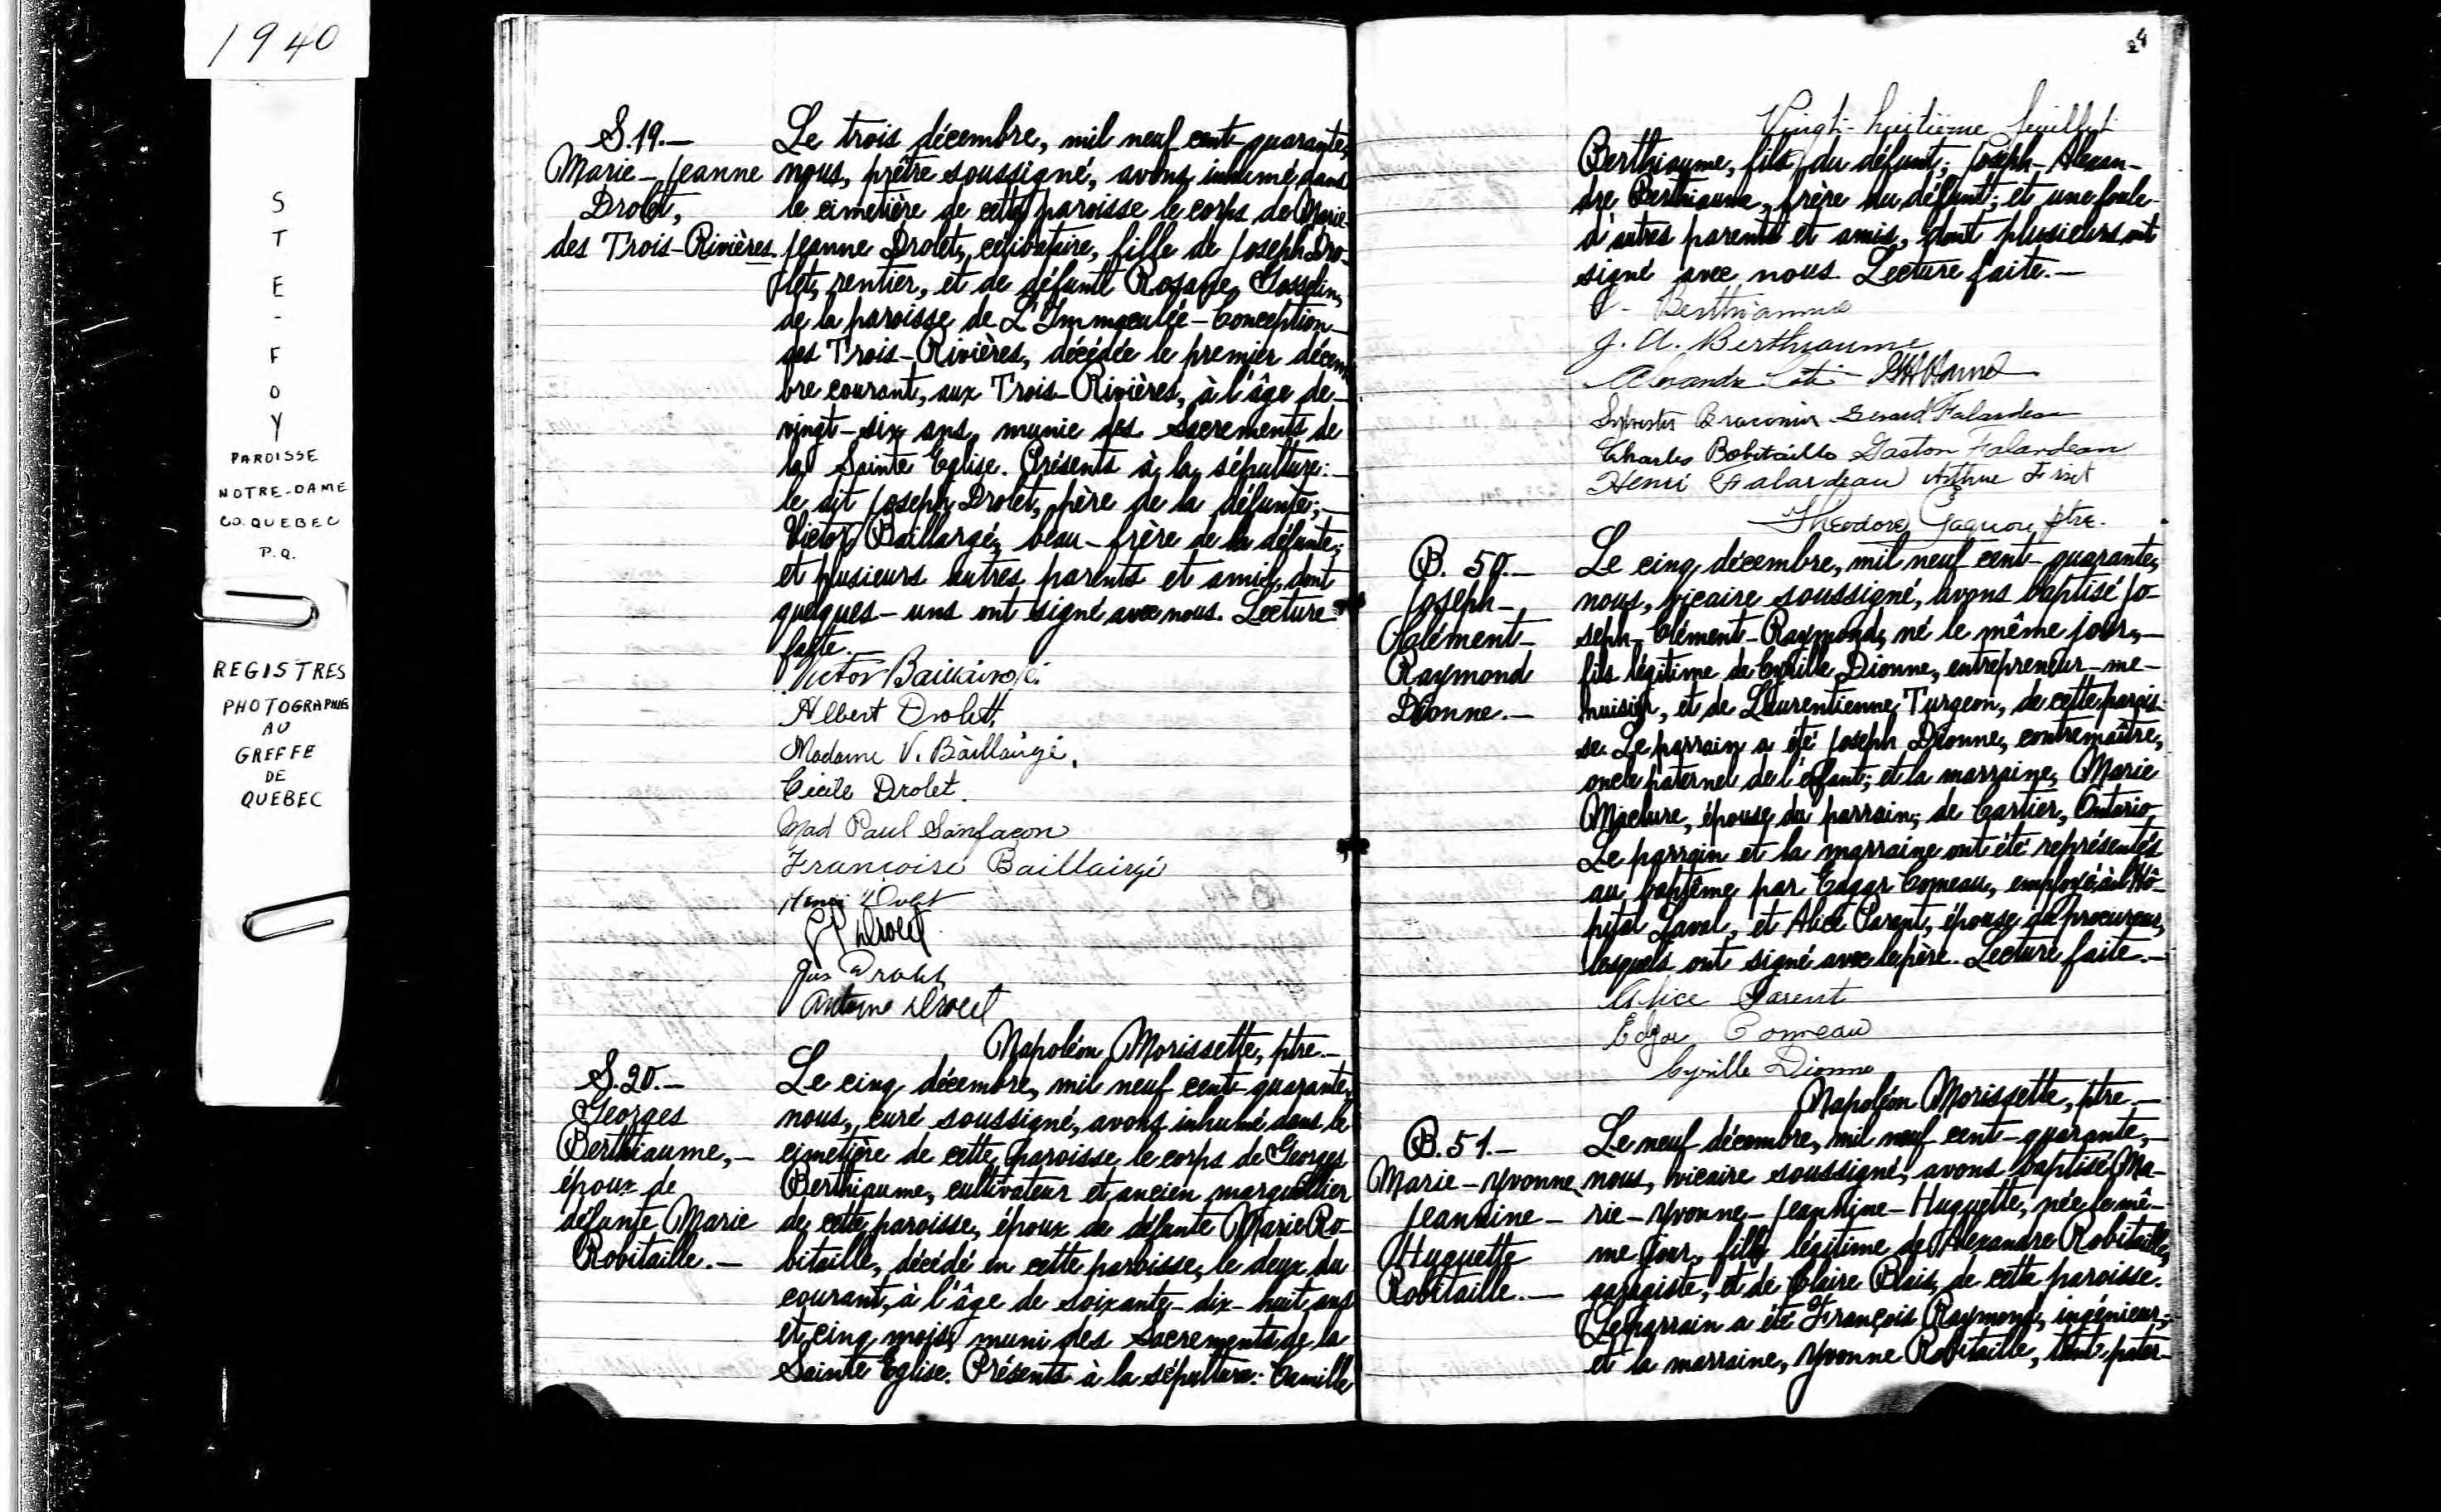 1940
STE-FOY
PAROISSE
NOTRE-DAME
CO. QUEBEC
P.Q.
REGISTRES
PHOTOGRAPHIES
AU
GREFFE
DE
QUEBEC
S.19.—
Marie-Jeanne
Drolet,
des Trois-Rivières.
Le trois décembre, mil neuf cent-quarante,
nous, prêtre soussigné, avons inhumé dans
le cimetière de cette paroisse le corps de Marie-
Jeanne Drolet, célibataire, fille de Joseph Dro-
let, rentier, et de défunte Gosselin,
de la paroisse de L'Immaculée-Conception
des Trois-Rivières, décédée le premier décem-
bre courant, aux Trois-Rivières, à l'âge de—
vingt-six ans, munie des sacrements de
la Sainte Eglise. Présents à la sépulture:—
le dit Joseph Drolet, père de la défunte;—
Victor Baillargé, beau-frère de la défunte;
et plusieurs autres parents et amis, dont
quelques-uns ont signé avec nous. Lecture
faite.—
Victor Baillairgé.
Albert Drolet,
Madame V. Baillairgé,
Cécile Drolet.
Mad Paul Sanfaçon
Françoise Baillairgé
Henri Drolet
Drolet
Drolet
Antoine Drolet
Napoléon Morissette, ptre.—
S.20.—
Georges
Berthiaume,—
époux de
défunte Marie
Robitaille.—
Le cinq décembre, mil neuf cent-quarante,
nous, curé soussigné, avons inhumé dans le
cimetière de cette paroisse le corps de Georges
Berthiaume, cultivateur et ancien marguillier
de cette paroisse, époux de défunte Marie Ro-
bitaille, décédé en cette paroisse, le deux du
courant, à l'âge de soixante-dix-huit ans
et cinq mois, muni des sacrements de la
Sainte Eglise. Présents à la sépulture: Camille
Vingt-huitième feuillet
Berthiaume, fils du défunt; Joseph-Alexan-
dre Berthiaume, frère du défunt; et une foule
d'autres parents et amis, dont plusieurs ont
signé avec nous. Lecture faite.—
C. Berthiaume
J. A. Berthiaume
Alexandre Côté
Sylvester Gérard Falardeau
Charles Robitaille Gaston Falardeau
Henri Falardeau Arthur
Théodore Gagnon ptre.
B. 50.—
Joseph-
Clément-
Raymond
Dionne.—
Le cinq décembre, mil neuf cent-quarante,
nous, vicaire soussigné, avons baptisé Jo-
seph-Clément-Raymond, né le même jour,—
fils légitime de Cyrille Dionne, entrepreneur-me-
nuisier, et de Laurentienne Turgeon, de cette parois-
se. Le parrain a été Joseph Dionne, contremaître,
oncle paternel de l'enfant; et la marraine, Marie
Maclure, épouse du parrain; de Cartier, Ontario.
Le parrain et la marraine ont été représentés
au baptême par Edgar Comeau, employé à l'Hô-
pital Laval, et Alice Parent, épouse du procureur,
lesquels ont signé avec le père. Lecture faite.—
Alice Parent
Edgar Comeau
Cyrille Dionne
Napoléon Morissette, ptre.—
B.51.—
Marie-Yvonne-
Jeannine-
Huguette
Robitaille.—
Le neuf décembre, mil neuf cent-quarante,—
nous, vicaire soussigné, avons baptisé Ma-
rie-Yvonne-Jeannine-Huguette, née le mê-
me jour, fille légitime de Alexandre Robitaille,
garagiste, et de Claire Blais, de cette paroisse.
Le parrain a été François Raymond, ingénieur,
et la marraine, Yvonne Robitaille, tante pater-